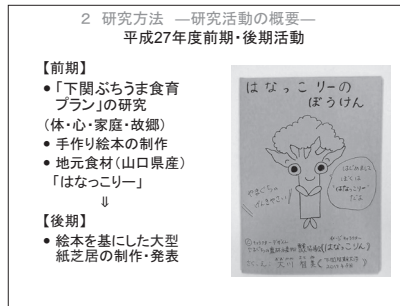 2 研究方法 ―研究活動の概要―
平成27年度前期・後期活動
【前期】
• 「下関ぶちうま食育
プラン」の研究
（体・心・家庭・故郷）
• 手作り絵本の制作
• 地元食材（山口県産）
「はなっこりー」
⇓
【後期】
• 絵本を基にした大型
紙芝居の制作・発表
はなっこリーの
ぼうけん
はじめまして
ぼくは
"はなっこリー"
だよ
やまぐちの
げんきやさい!